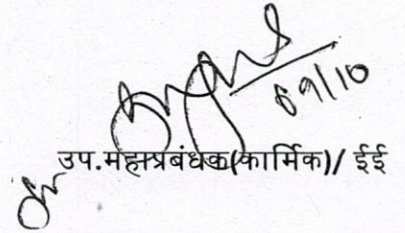 09/10
उप.महाप्रबंधक(कार्मिक)/ ईई